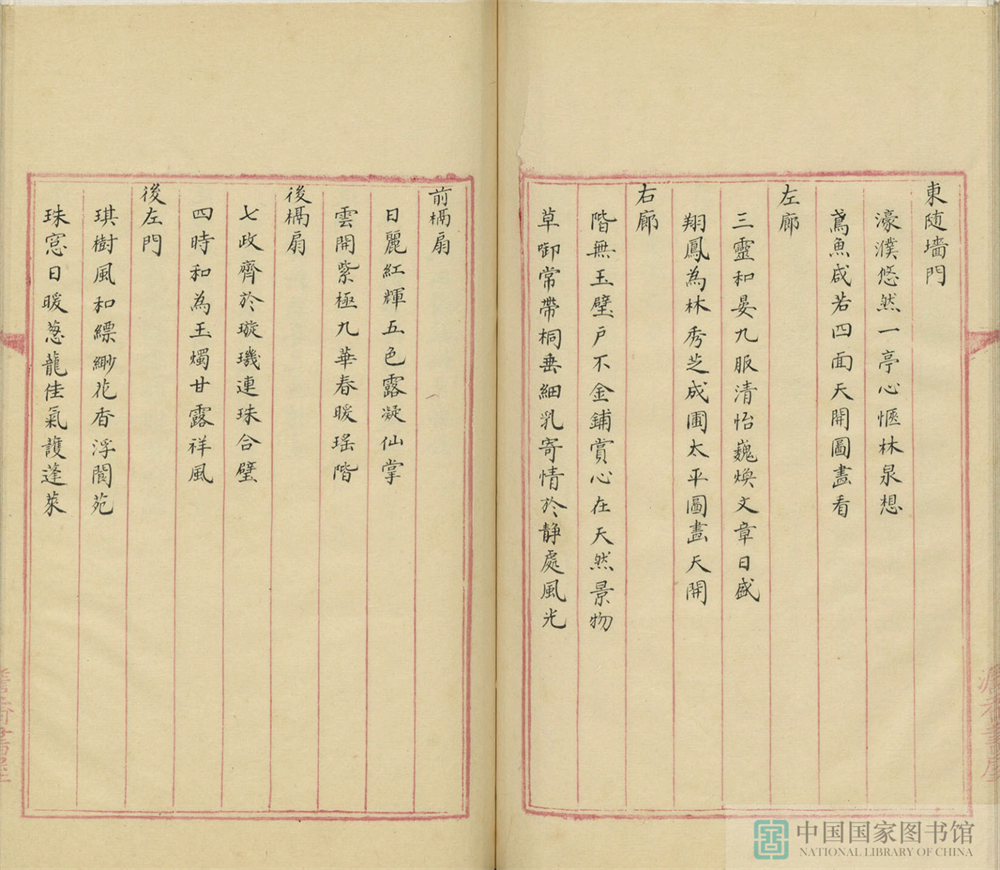 東随墻門
濠濮悠然一亭心愜林泉想
鳶魚咸若四面天開圖畫看
左廊
三靈和晏九服清怡巍煥文章日盛
翔鳳為林秀芝成圃太平圖畫天開
右廊
階無玉璧戶不金鋪賞心在天然景物
草卸常帶桐垂細乳寄情於靜處風光
前槅扇
日麗紅輝五色露凝仙掌
雲開紫極九華春暖瑤階
後槅扇
七政齊於璇璣連珠合璧
四時和為玉燭甘露祥風
後左門
琪樹風和縹緲花香浮閬苑
珠窓日暖葱蘢佳氣護蓬萊
中国国家图书馆
NATIONAL LIBRARY OF CHINA